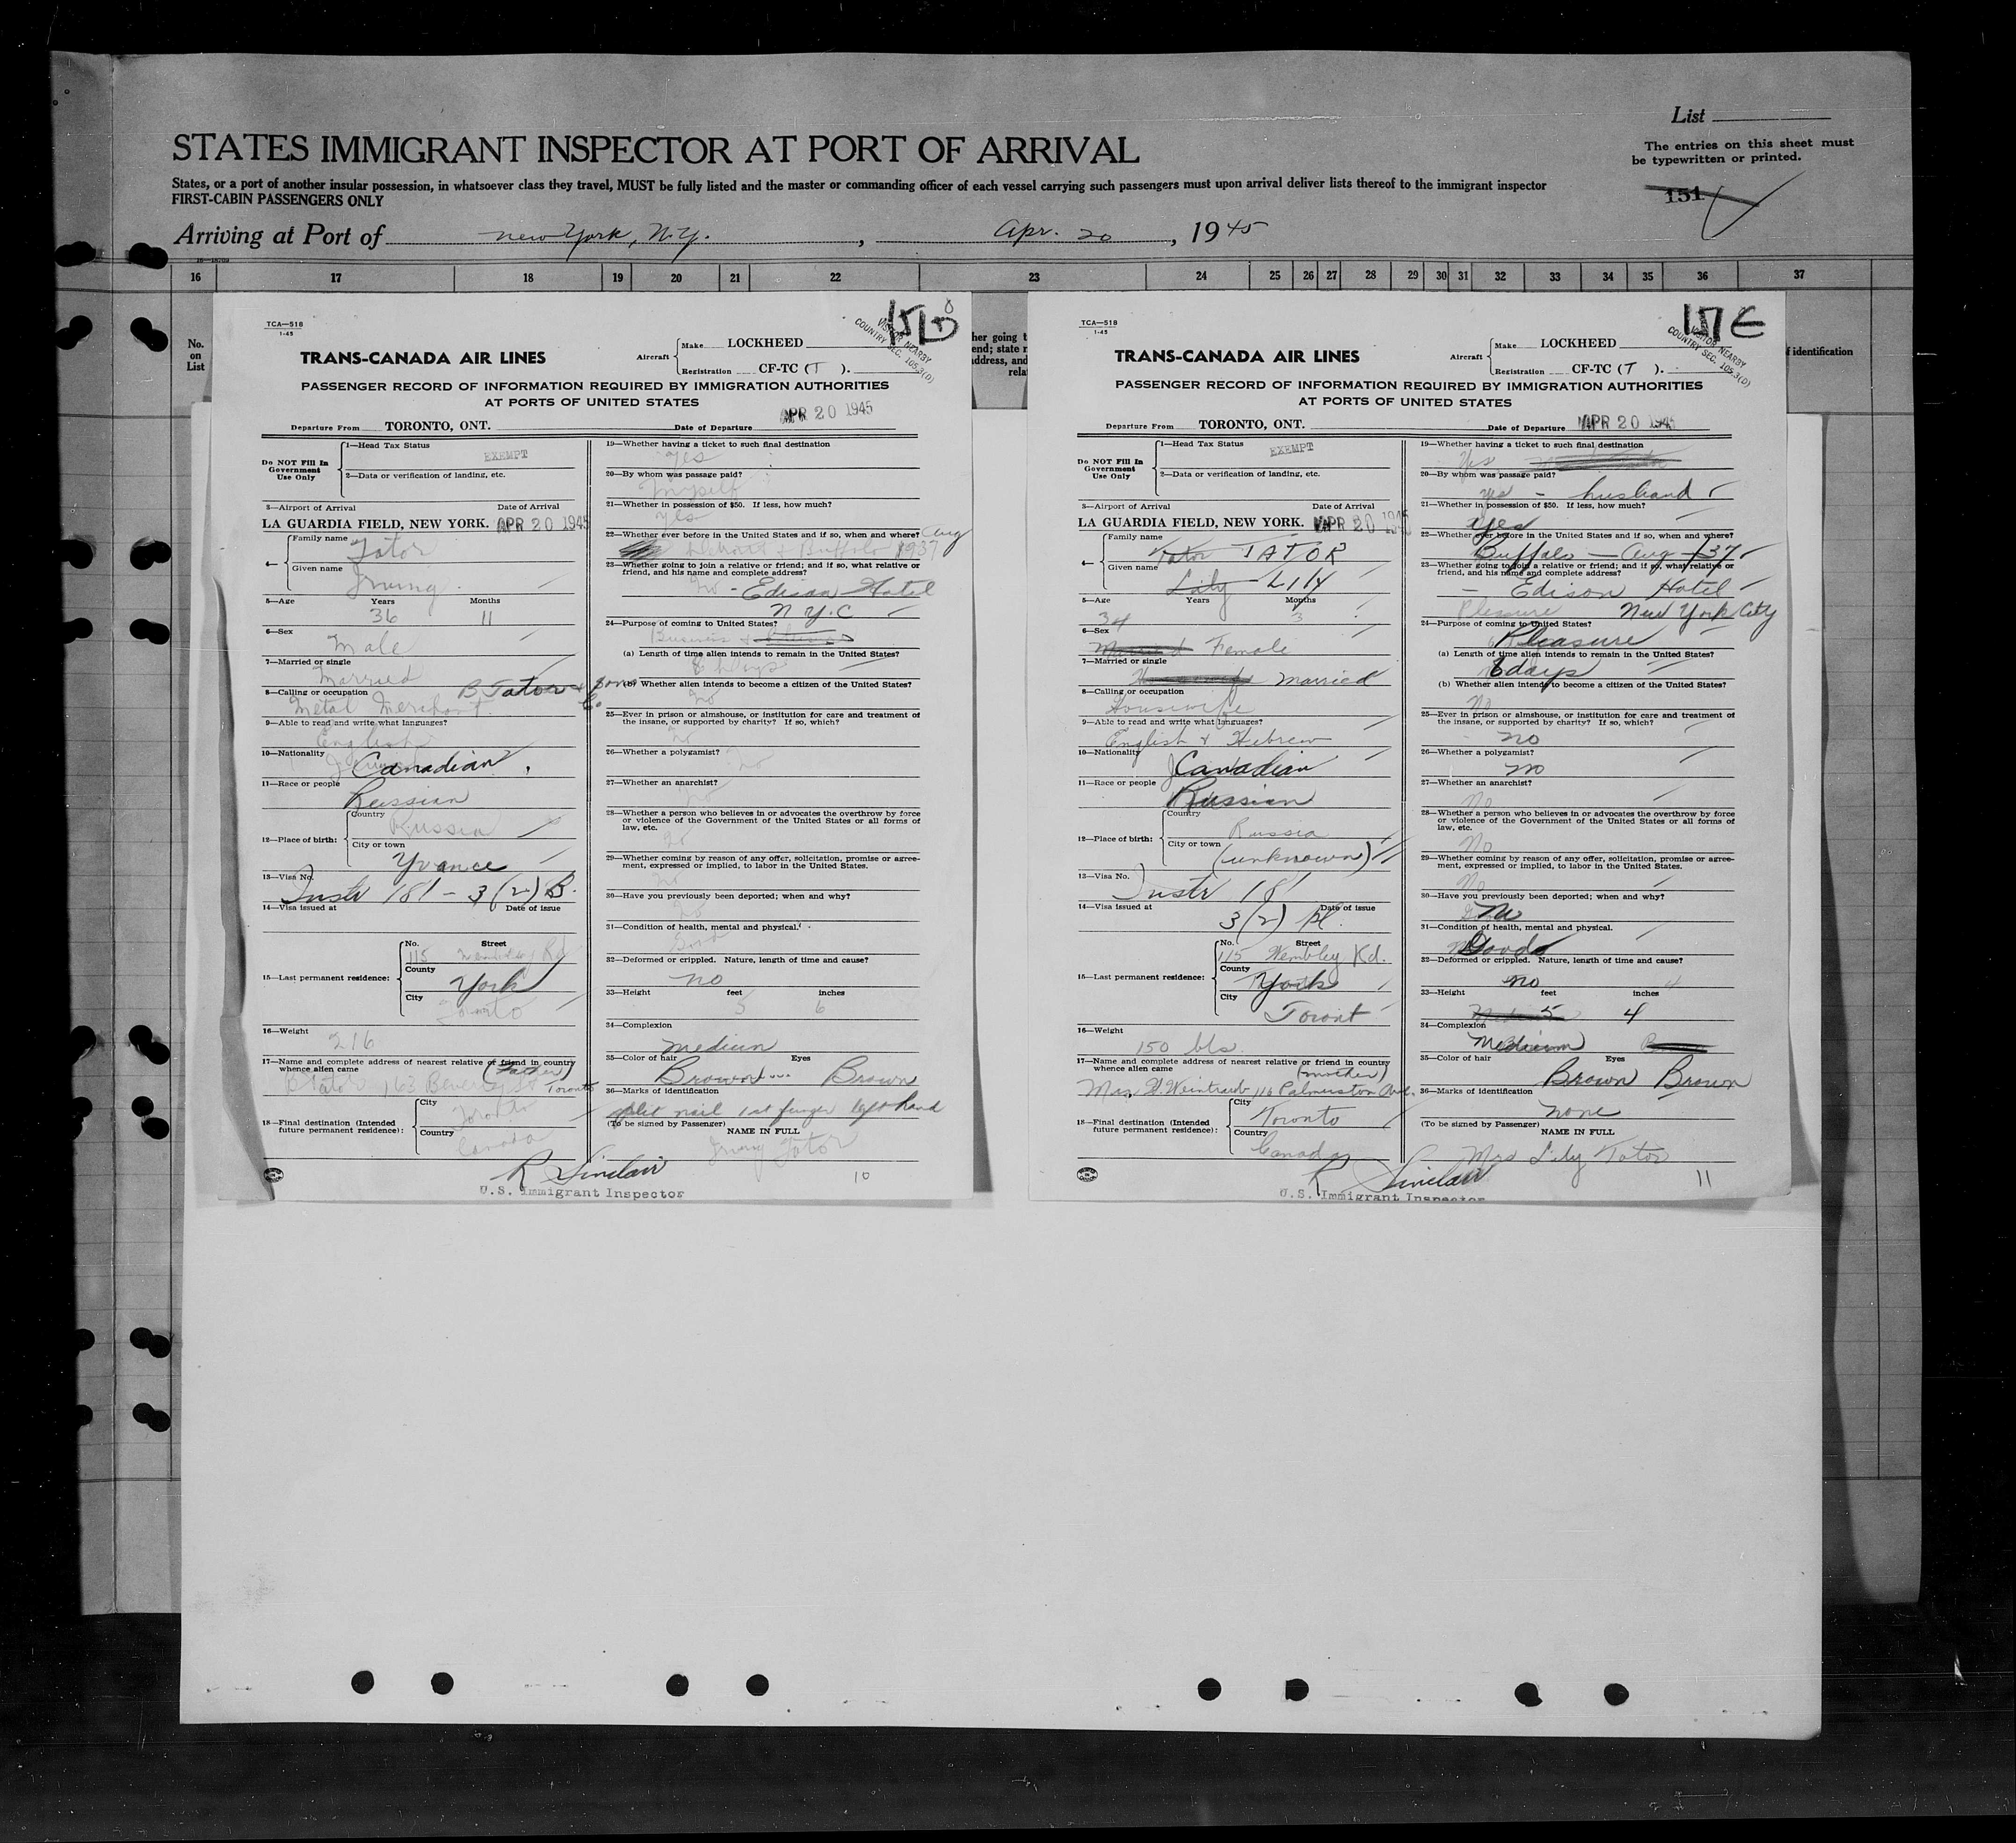 List
The entries on this sheet must
be typewritten or printed.
STATES IMMIGRANT INSPECTOR AT PORT OF ARRIVAL
States, or a port of another insular possession, in whatsoever class they travel, MUST be fully listed and the master or commanding officer of each vessel carrying such passengers must upon arrival deliver lists thereof to the immigrant inspector
FIRST-CABIN PASSENGERS ONLY
151
Arriving at Port of New York, N.Y. , Apr. 20 , 1945
16 17 18 19 20 21 22 23 24 25 26 27 28 29 30 31 32 33 34 35 36 37
No.
on
List
TCA—518
1-45
TRANS-CANADA AIR LINES
Aircraft Make LOCKHEED
Registration CF-TC (T).
VISITOR NEARBY
COUNTRY SEC. 105.3(D)
PASSENGER RECORD OF INFORMATION REQUIRED BY IMMIGRATION AUTHORITIES
AT PORTS OF UNITED STATES
Departure From TORONTO, ONT. Date of Departure APR 20 1945
Do NOT Fill In
Government
Use Only
1—Head Tax Status
EXEMPT
2—Data or verification of landing, etc.
3—Airport of Arrival Date of Arrival
LA GUARDIA FIELD, NEW YORK. APR 20 1945
4— Family name Tator
Given name Irving
5—Age Years Months
36 11
6—Sex
Male
7—Married or single
Married
8—Calling or occupation B Tator & Sons Co.
Metal Merchant
9—Able to read and write what languages?
English
10—Nationality
Canadian
11—Race or people
Russian
12—Place of birth: Country
Russia
City or town
Yvance
13—Visa No.
Instr 181 - 3(2) B.
14—Visa issued at Date of issue
15—Last permanent residence: No. Street
115 Wembley Rd
County
York
City
Toronto
16—Weight
216
17—Name and complete address of nearest relative or friend in country
whence alien came (Father)
B Tator 163 Beverley St Toronto
18—Final destination (Intended
future permanent residence):
City
Toronto
Country
Canada
19—Whether having a ticket to such final destination
Yes
20—By whom was passage paid?
Myself
21—Whether in possession of $50. If less, how much?
Yes
22—Whether ever before in the United States and if so, when and where? Aug
Detroit & Buffalo 1937
23—Whether going to join a relative or friend; and if so, what relative or
friend, and his name and complete address?
No - Edison Hotel
N.Y.C
24—Purpose of coming to United States?
Business &
(a) Length of time alien intends to remain in the United States?
6 Days
(b) Whether alien intends to become a citizen of the United States?
No
25—Ever in prison or almshouse, or institution for care and treatment of
the insane, or supported by charity? If so, which?
No
26—Whether a polygamist?
No
27—Whether an anarchist?
No
28—Whether a person who believes in or advocates the overthrow by force
or violence of the Government of the United States or all forms of
law, etc.
No
29—Whether coming by reason of any offer, solicitation, promise or agree-
ment, expressed or implied, to labor in the United States?
No
30—Have you previously been deported; when and why?
No
31—Condition of health, mental and physical.
Good
32—Deformed or crippled. Nature, length of time and cause?
no
33—Height feet inches
5 6
34—Complexion
Medium
35—Color of hair Eyes
Brown Brown
36—Marks of identification
split nail 1st finger left hand
(To be signed by Passenger)
NAME IN FULL
Irving Tator
R Sinclair 10
U.S. Immigrant Inspector
TCA—518
1-45
TRANS-CANADA AIR LINES
Aircraft Make LOCKHEED
Registration CF-TC (T).
VISITOR NEARBY
COUNTRY SEC. 105.3(D)
PASSENGER RECORD OF INFORMATION REQUIRED BY IMMIGRATION AUTHORITIES
AT PORTS OF UNITED STATES
Departure From TORONTO, ONT. Date of Departure APR 20 1945
Do NOT Fill In
Government
Use Only
1—Head Tax Status
EXEMPT
2—Data or verification of landing, etc.
3—Airport of Arrival Date of Arrival
LA GUARDIA FIELD, NEW YORK. APR 20 1945
4— Family name Tator TATOR
Given name Lily Lily
5—Age Years Months
34 3
6—Sex
Female
7—Married or single
Married
8—Calling or occupation
Housewife
9—Able to read and write what languages?
English & Hebrew
10—Nationality
Canadian
11—Race or people
Russian
12—Place of birth: Country
Russia
City or town
(unknown)
13—Visa No.
Instr 181
14—Visa issued at Date of issue
3(2)
15—Last permanent residence: No. Street
115 Wembley Rd.
County
York
City
Toront
16—Weight
150 lbs.
17—Name and complete address of nearest relative or friend in country
whence alien came (mother)
Mrs. Weintraub 116 Palmerston Ave.
18—Final destination (Intended
future permanent residence):
City
Toronto
Country
Canada
19—Whether having a ticket to such final destination
Yes
20—By whom was passage paid?
yes - husband
21—Whether in possession of $50. If less, how much?
Yes
22—Whether ever before in the United States and if so, when and where?
Buffalo — Aug /37
23—Whether going to join a relative or friend; and if so, what relative or
friend, and his name and complete address?
- Edison Hotel
Pleasure New York City
24—Purpose of coming to United States?
Pleasure
(a) Length of time alien intends to remain in the United States?
6 days
(b) Whether alien intends to become a citizen of the United States?
No
25—Ever in prison or almshouse, or institution for care and treatment of
the insane, or supported by charity? If so, which?
no
26—Whether a polygamist?
no
27—Whether an anarchist?
No
28—Whether a person who believes in or advocates the overthrow by force
or violence of the Government of the United States or all forms of
law, etc.
No
29—Whether coming by reason of any offer, solicitation, promise or agree-
ment, expressed or implied, to labor in the United States?
No
30—Have you previously been deported; when and why?
No
31—Condition of health, mental and physical.
Good
32—Deformed or crippled. Nature, length of time and cause?
no
33—Height feet inches
5 4
34—Complexion
Medium
35—Color of hair Eyes
Brown Brown
36—Marks of identification
none
(To be signed by Passenger)
NAME IN FULL
Mrs Lily Tator
R Sinclair 11
U.S. Immigrant Inspector